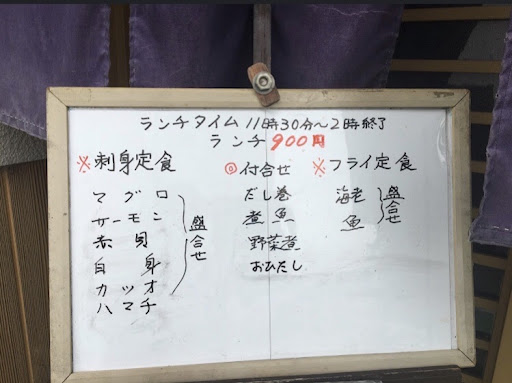 ランチタイム 11時30分～2時終了
ランチ 900円
※刺身定食
マグロ
サーモン
赤貝
白身
カツオ
ハマチ
盛合せ
◎付合せ
だし巻
煮魚
野菜煮
おひたし
※フライ定食
海老
魚
盛合せ